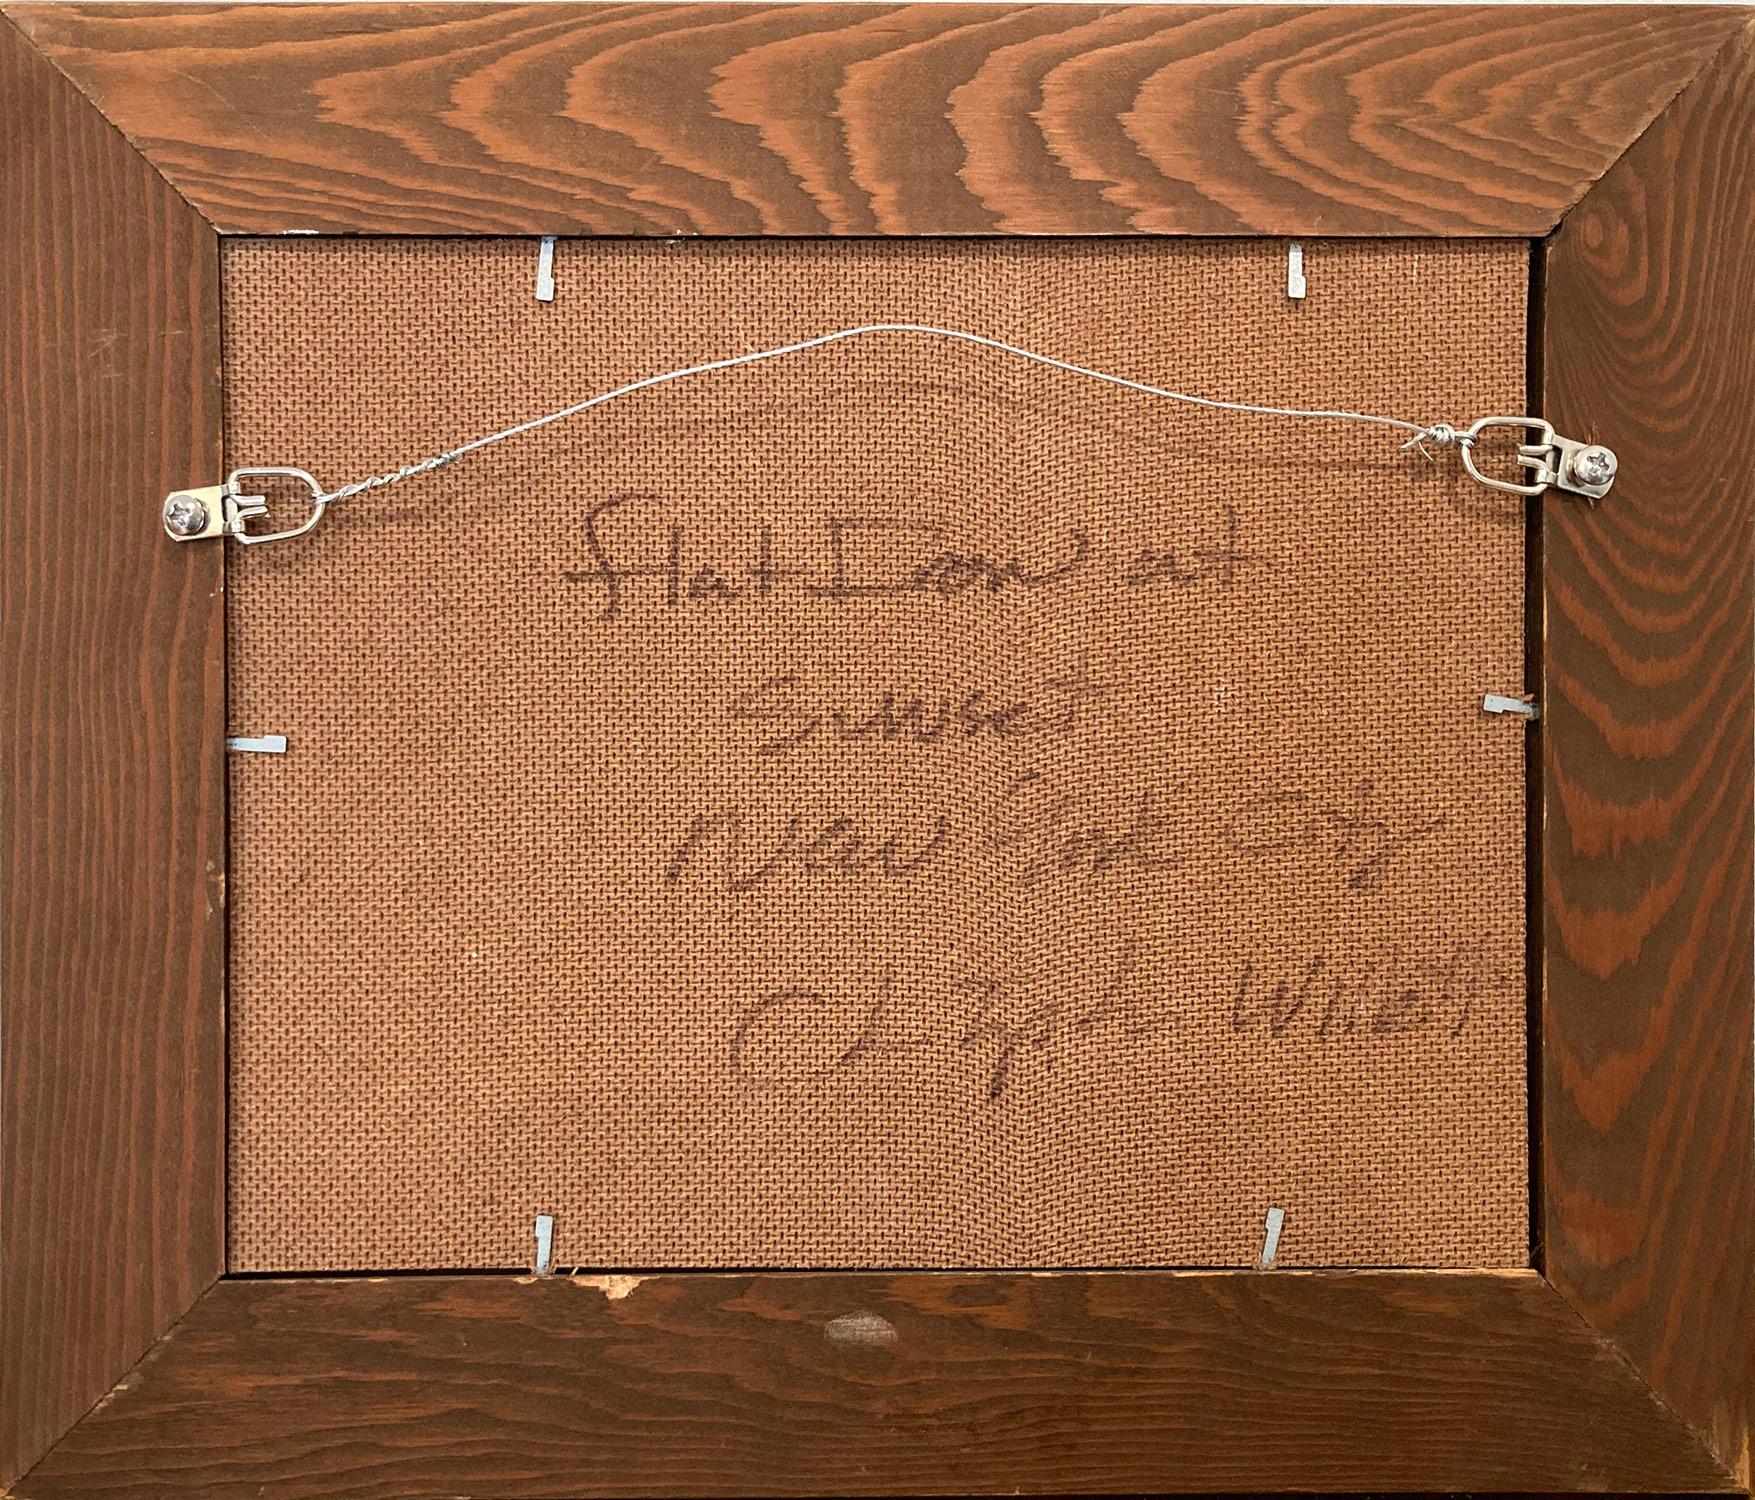 Flat Iron at
Sunset
New York City
Christoph Willett